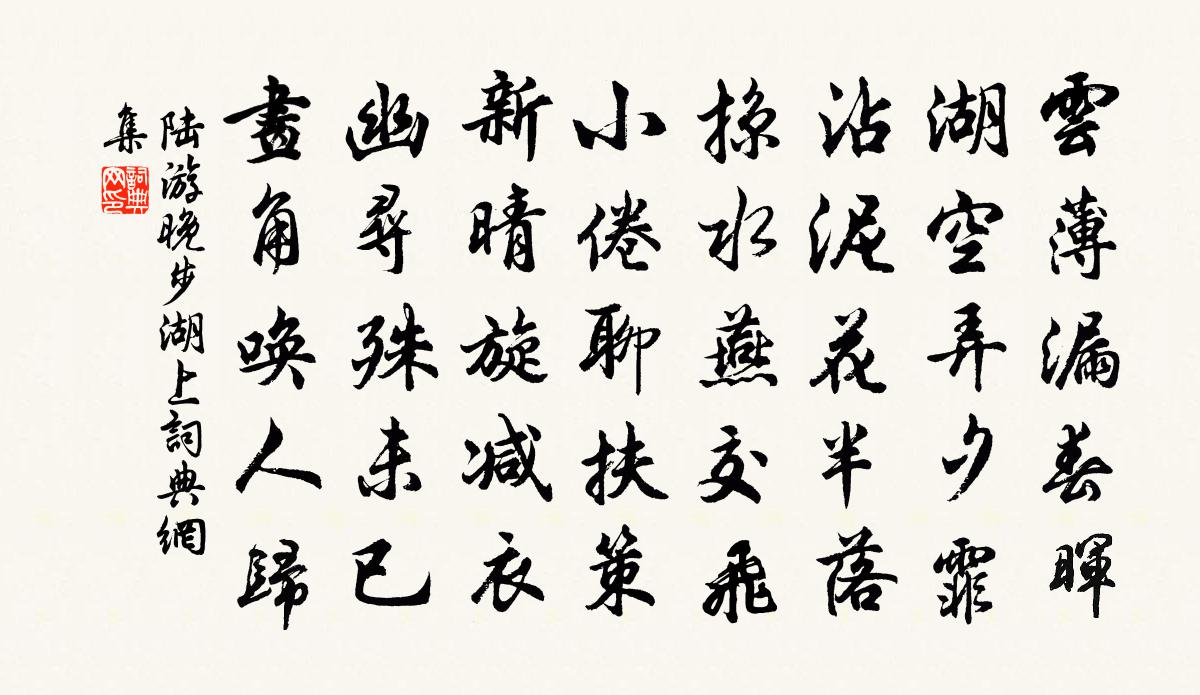 雲薄漏春暉
湖空弄夕霏
沾泥花半落
掠水燕交飛
小倦聊扶策
新晴旋減衣
幽尋殊未已
畫角喚人歸
陸游晚步湖上詞典網
集
詞典
网印